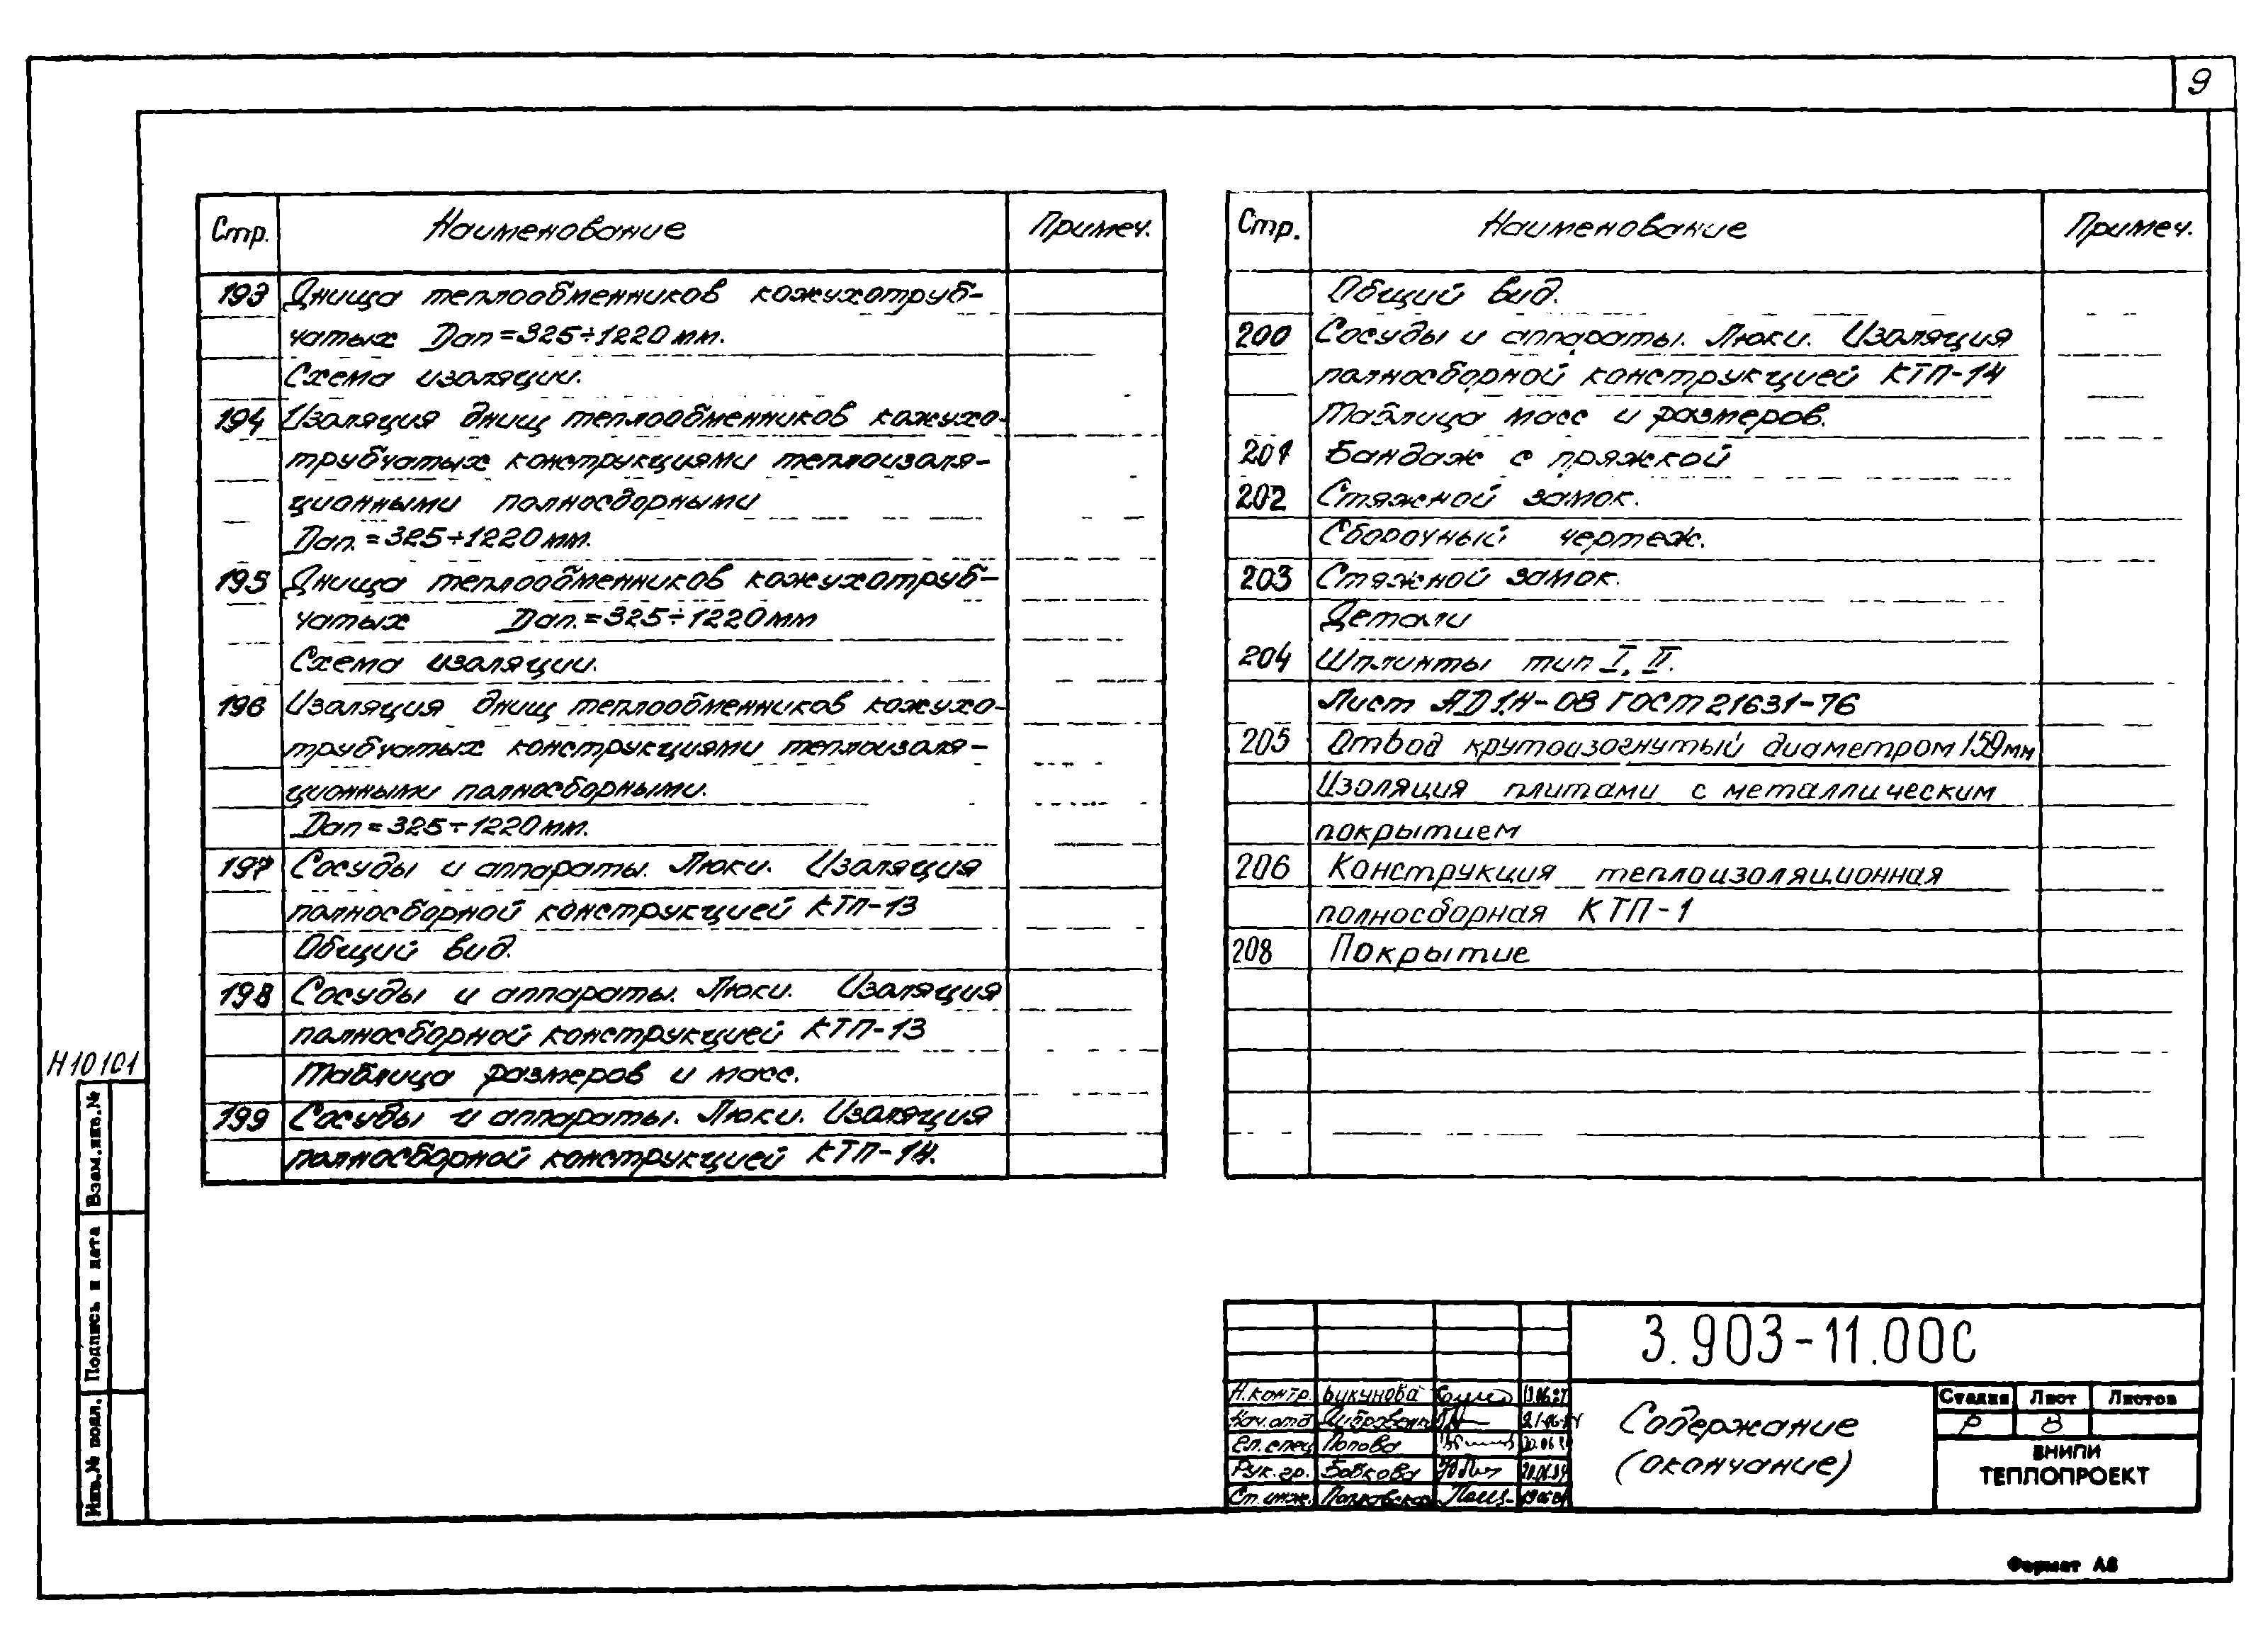 9
Стр. Наименование Примеч.
193 Днища теплообменников кожухотруб-
чатых Dап=325÷1220мм.
Схема изоляции.
194 Изоляция днищ теплообменников кожухо-
трубчатых конструкциями теплоизоля-
ционными полносборными
Dап.=325÷1220мм.
195 Днища теплообменников кожухотруб-
чатых Dап.=325÷1220мм
Схема изоляции.
196 Изоляция днищ теплообменников кожухо-
трубчатых конструкциями теплоизоля-
ционными полносборными.
Dап=325÷1220мм.
197 Сосуды и аппараты. Люки. Изоляция
полносборной конструкцией КТП-13
Общий вид.
198 Сосуды и аппараты. Люки. Изоляция
полносборной конструкцией КТП-13
Таблица размеров и масс.
199 Сосуды и аппараты. Люки. Изоляция
полносборной конструкцией КТП-14.
Стр. Наименование Примеч.
Общий вид.
200 Сосуды и аппараты. Люки. Изоляция
полносборной конструкцией КТП-14
Таблица масс и размеров.
201 Бандаж с пряжкой
202 Стяжной замок.
Сборочный чертеж.
203 Стяжной замок.
Детали
204 Шплинты тип I, II.
Лист АД1.Н-08 ГОСТ 21631-76
205 Отвод крутоизогнутый диаметром 159мм
Изоляция плитами с металлическим
покрытием
206 Конструкция теплоизоляционная
полносборная КТП-1
208 Покрытие
Н10101
Взам.инв.№
Подпись и дата
Инв.№ подл.
3.903-11.00С
Н.контр. Букунова
Нач.отд
Гл.спец Попова
Рук.гр. Бовкова
Ст.инж.
Содержание
(окончание)
Стадия Лист Листов
Р 8
ВНИПИ
ТЕПЛОПРОЕКТ
Формат А3